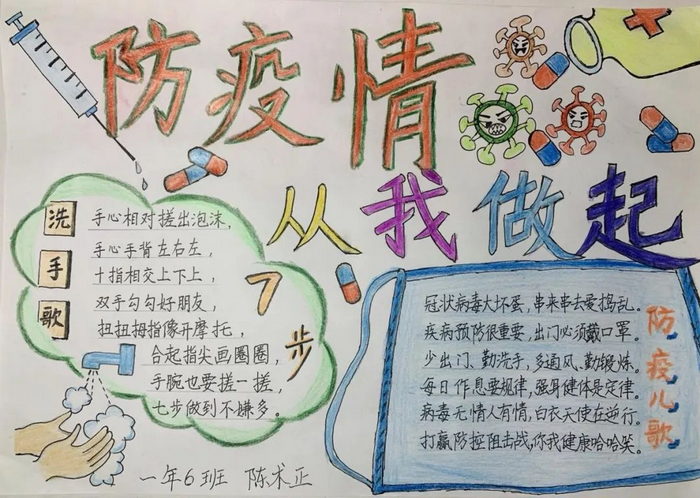 防疫情
从我做起
洗手歌
手心相对搓出泡沫，
手心手背左右左，
十指相交上下上，
双手勾勾好朋友，
扭扭拇指像开摩托，
合起指尖画圈圈，
手腕也要搓一搓，
七步做到不嫌多。
7步
冠状病毒大坏蛋，串来串去爱捣乱。
疾病预防很重要，出门必须戴口罩。
少出门、勤洗手，多通风、勤锻炼。
每日作息要规律，强身健体是定律。
病毒无情人有情，白衣天使在逆行。
打赢防控阻击战，你我健康哈哈笑。
防疫儿歌
一年6班 陈术正